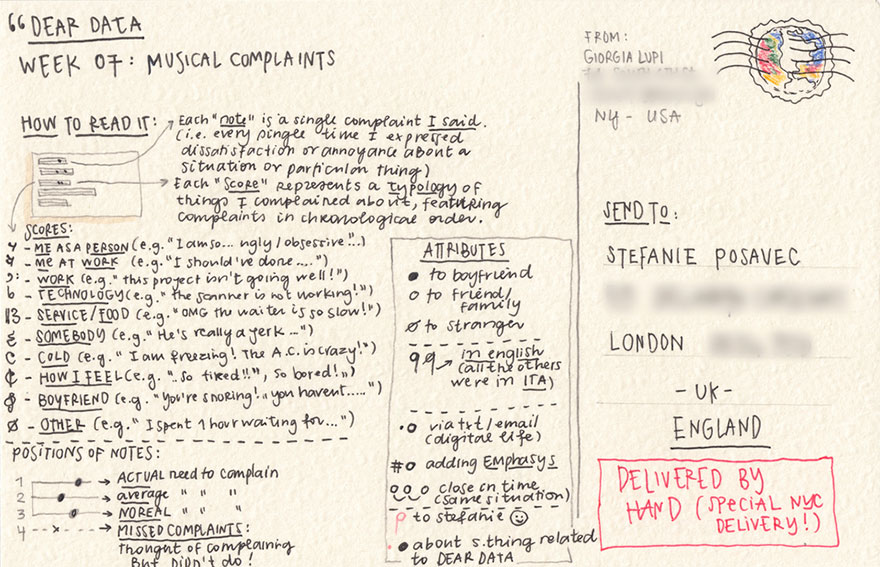 DEAR DATA
WEEK 07: MUSICAL COMPLAINTS
HOW TO READ IT:
Each "note" is a single complaint I said.
(i.e. every single time I expressed
dissatisfaction or annoyance about a
situation or particular thing)
Each "Score" represents a typology of
things I complained about, featuring
complaints in chronological order.
SCORES:
ME AS A PERSON (e.g. "I am so... ugly/obsessive"..)
ME AT WORK (e.g. "I should've done....")
WORK (e.g. "this project isn't going well!")
TECHNOLOGY (e.g. "the scanner is not working!")
SERVICE/FOOD (e.g. "OMG the waiter is so slow!")
SOMEBODY (e.g. "He's really a jerk...")
COLD (e.g. "I am freezing! The A.C. is crazy!")
HOW I FEEL (e.g. "..so tired!!", so bored!")
BOYFRIEND (e.g. "You're snoring! you havent.....")
OTHER (e.g. "I spent 1 hour waiting for...")
POSITIONS OF NOTES:
1 ACTUAL need to complain
2 average " " "
3 NO REAL " " "
4 MISSED COMPLAINTS:
thought of complaining
BUT DIDN'T do!
ATTRIBUTES
to boyfriend
to friend/
family
to stranger
in english
(all the others
were in ITA)
via txt/email
(digital life)
adding EMPHASYS
close in time
(same situation)
to stefanie
about s.thing related
to DEAR DATA
FROM:
GIORGIA LUPI
NY - USA
SEND TO:
STEFANIE POSAVEC
LONDON
-UK-
ENGLAND
DELIVERED BY
HAND (SPECIAL NYC
DELIVERY!)